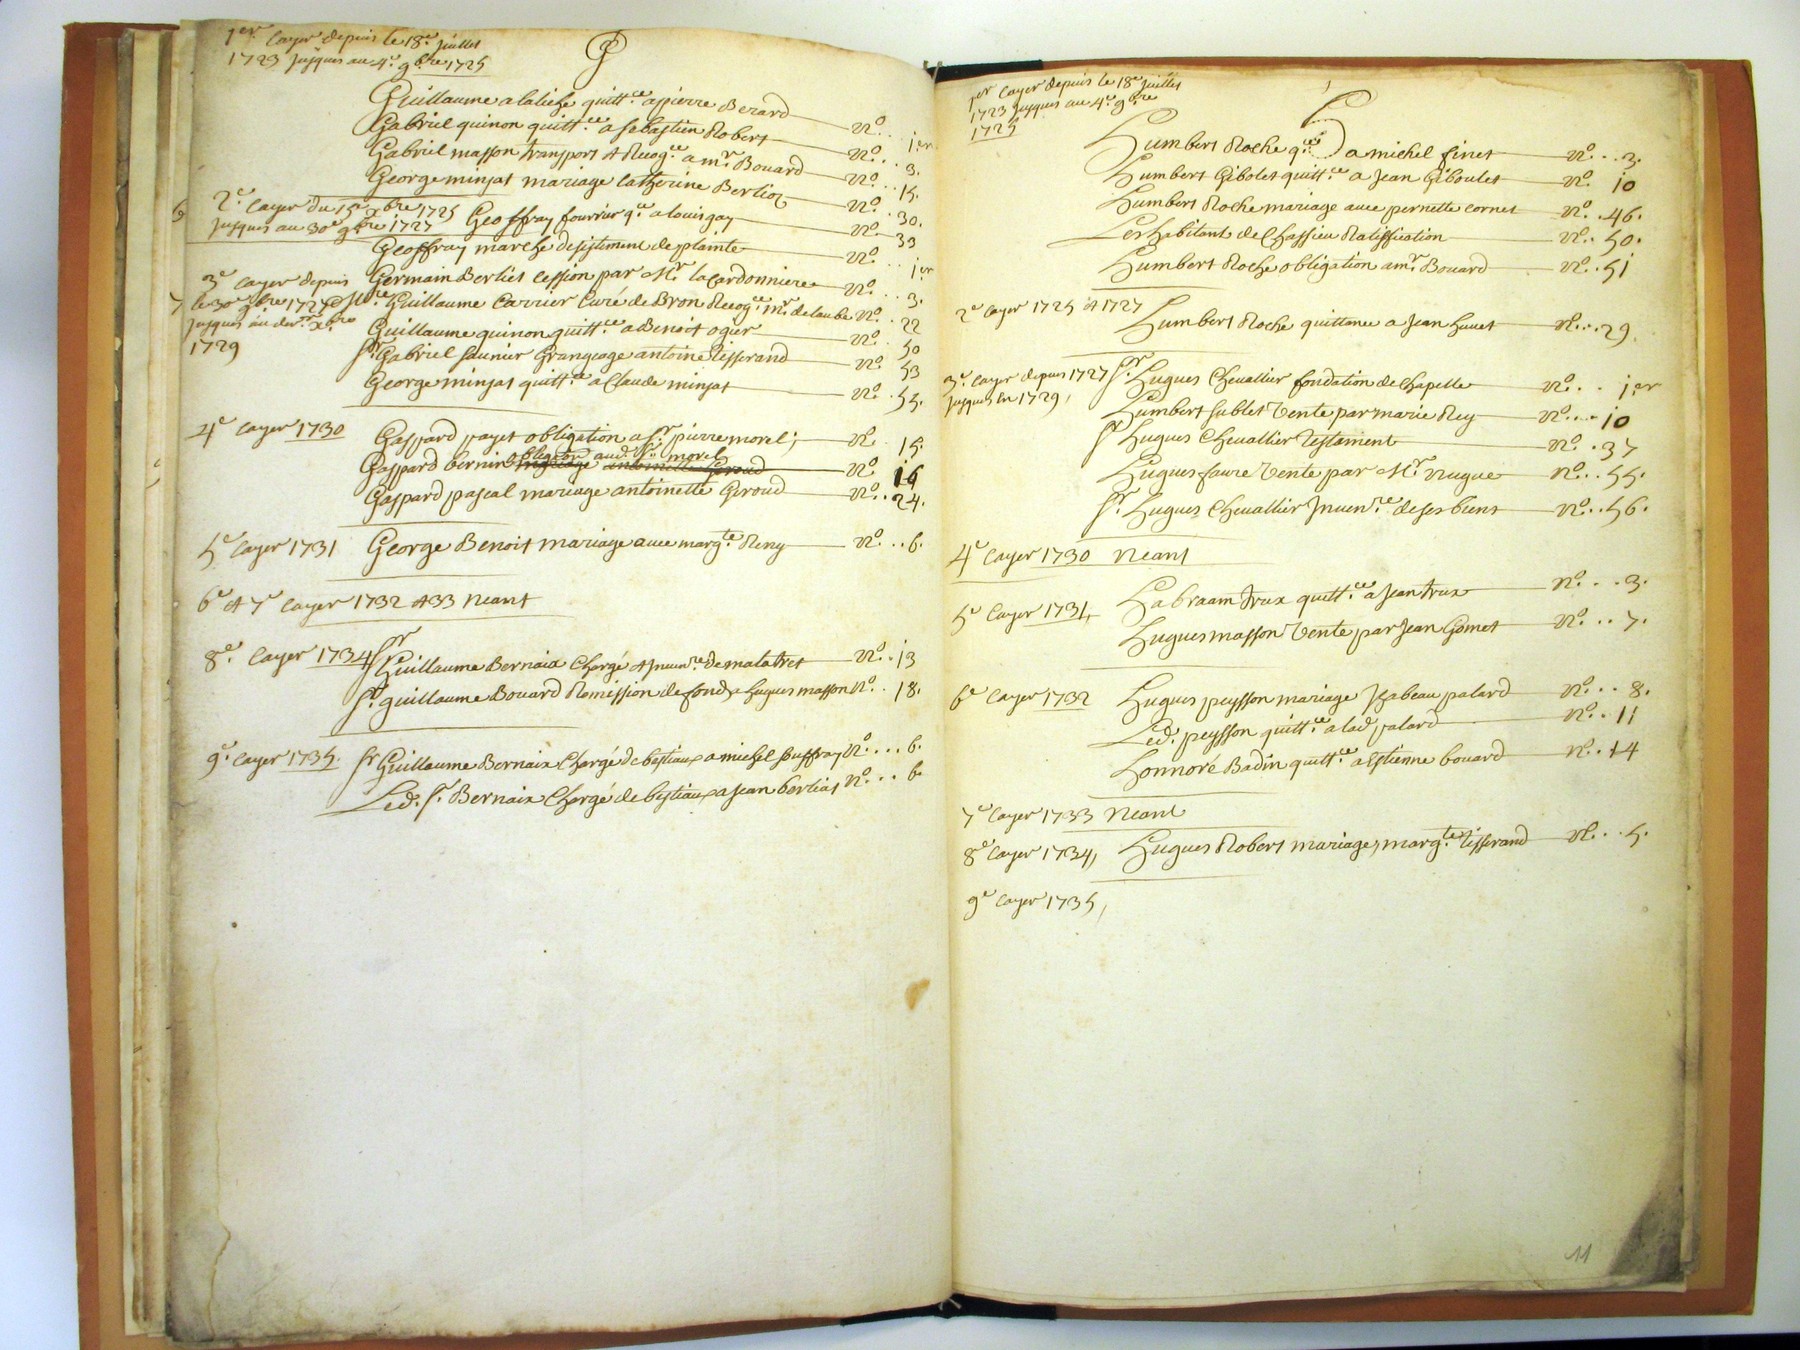 1er. Cayer depuis le 18e. Juillet
1723 Jusques au 4e. 9bre 1725
G
Guillaume alaliche quitt.ce apierre Berard N°. . 1er
Gabriel quinon quitt.ce a sebastien Robert N°. . 3.
Gabriel masson transport & Recog.ce a mr. Bouard N°. . 15.
George minjat mariage Catherine Berlioz N°. 30.
2e. Cayer du 15e xbre 1725
Jusques au 30e 9bre 1727
Geoffray fourrur q.ce a louis gay N°. 33
Geoffray marche desistiment de plainte N°. . 1er
3e Cayer depuis
le 30e 9bre 1727
Jusques au der. xbre
1729
Germain Berliet Cession par Mr. lacardonniere N°. . 3.
Mre. Guillaume Carrier Curé de Bron Recog.ce mr. de laube N°. . 22
Guillaume quinon quitt.ce a Benoit ogier N°. . 50
sr. Gabriel saunier Grangeage antoine tisserand N°. 53
George minjat quitt.ce a Claude minjat N°. . 55.
4e Cayer 1730
Gaspard payet obligation a sr. pierre morel; N°. 15.
obligaton aud. sr. morel
Gaspard bernin mariage antoinette Giroud N°. 16
Gaspard pascal mariage antoinette Giroud N°. . 24.
5e Cayer 1731
George Benoit mariage avec marg.te Reny N°. . . 6.
6e & 7e Cayer 1732 & 33 Neant
8e. Cayer 1734
sr Guillaume Bernaix Chargé & Inven.re de malatret N°. . 13
sr. guillaume Bouard Remission de fond a hugues masson N°. . 18.
9e. Cayer 1735.
sr Guillaume Bernaix Chargé de bestiaux a michel souffray N°. . . 6.
Led. sr. Bernaix Chargé de bestiaux a Jean berliat N°. . . 6.
1er Cayer depuis le 18e Juillet
1723 Jusques au 4e. 9bre
1725
H
Humbert Roche q.ce a michel finet N°. . . 3.
Humbert Gibolet quitt.ce a Jean Giboulet N°. 10
Humbert Roche mariage avec pernette cornet N°. . 46.
Les habitant de Chassieu Ratiffication N°. . 50.
Humbert Roche obligation a mr. Bouard N°. . 51
2e Cayer 1725 & 1727
Humbert Roche quittance a Jean huvet N°. . . 29.
3e. Cayer depuis 1727
Jusques en 1729,
sr. Hugues Chevallier fondation de Chapelle N°. . . 1er
Humbert sublet Vente par marie Rey N°. . . . 10
sr Hugues Chevallier Testament N°. . 37
Hugues faure Vente par Mr. Nugue N°. . . 55.
sr. Hugues Chevallier Inven.re de ses biens N°. . . 56.
4e Cayer 1730 Neant
5e Cayer 1731,
Habraam trux quitt.ce a Jean trux N°. . . 3.
Hugues masson Vente par Jean Gomet N°. . . 7.
6e Cayer 1732
Hugues peysson mariage Isabeau palard N°. . . 8.
Led. peysson quitt.ce a lad. palard N°. . . 11
Honnoré Badin quitt.ce a Estienne bouard N°. . 14
7e Cayer 1733 Neant
8e Cayer 1734,
Hugues Robert mariage, marg.te tisserand N°. . . 5.
9e Cayer 1735,
11